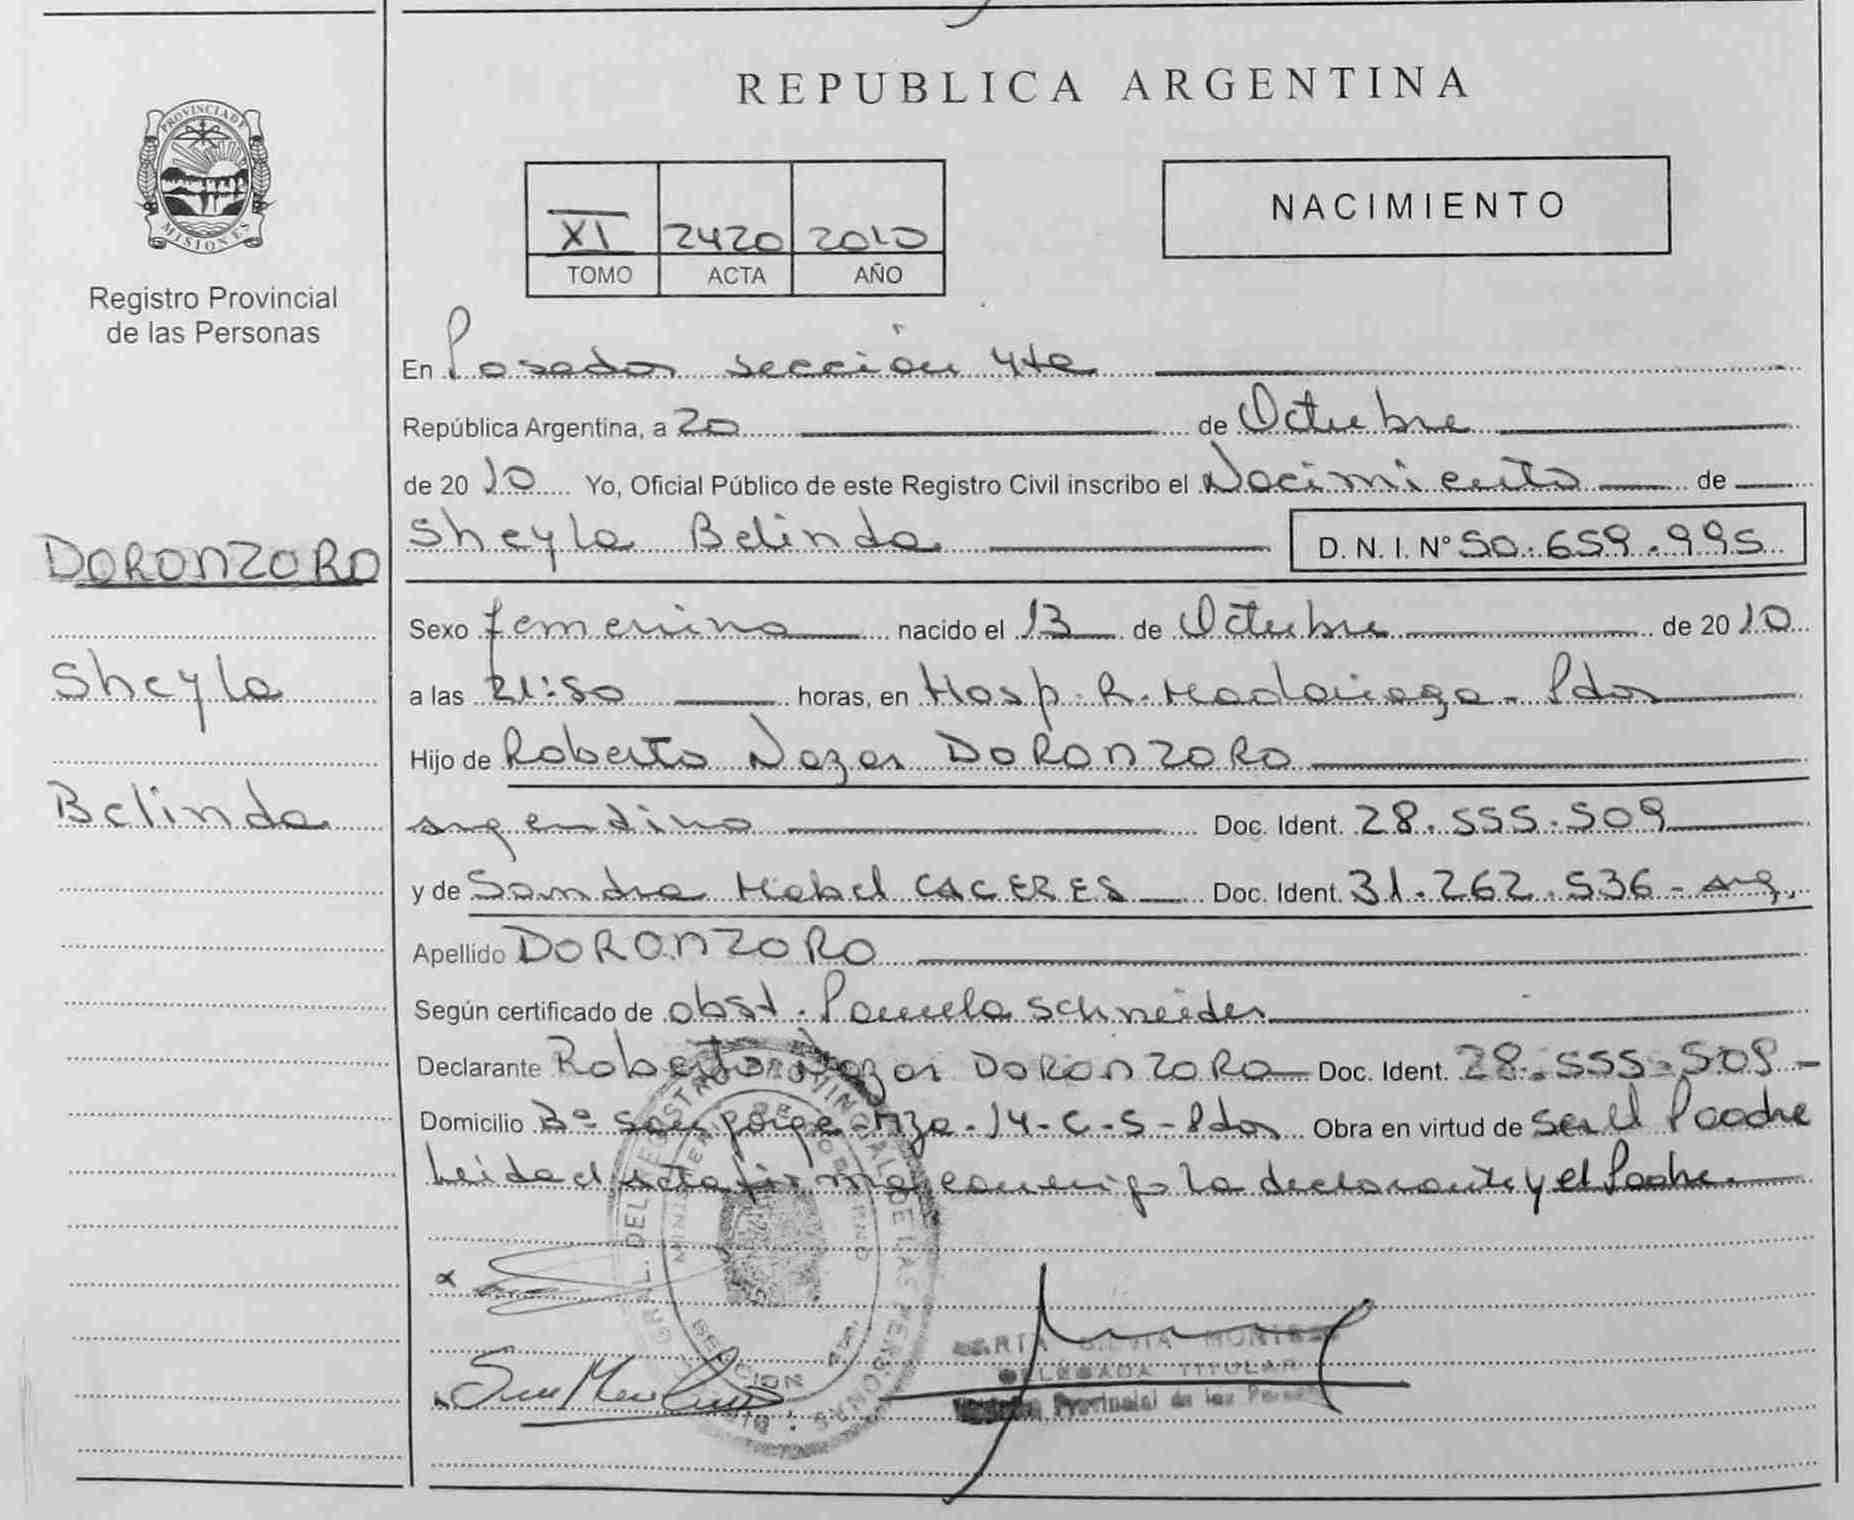 REPUBLICA ARGENTINA
PROVINCIA DE
MISIONES
Registro Provincial
de las Personas
NACIMIENTO
XI 2420 2010
TOMO ACTA AÑO
En Posadas sección 4ta
República Argentina, a 20 de Octubre
de 2010 Yo, Oficial Público de este Registro Civil inscribo el Nacimiento de
Sheyla Belinda D. N. I. N° 50.659.995
DORONZORO
Sheyla
Belinda
Sexo femenino nacido el 13 de Octubre de 2010
a las 21:50 horas, en Hosp. R. Madariaga - Pdas
Hijo de Roberto DORONZORO
argentino Doc. Ident. 28.555.509
y de Sandra Mabel CACERES Doc. Ident. 31.262.536 - arg.
Apellido DORONZORO
Según certificado de obst. Pamela Schneider
Declarante Roberto DORONZORO Doc. Ident. 28.555.509 -
Domicilio B° San Jorge - Mza - 14 - C - 5 - Pdas Obra en virtud de ser el Padre
Leida el acta firma conmigo la declarante y el Padre.
DELEGADA TITULAR
Provincial de las